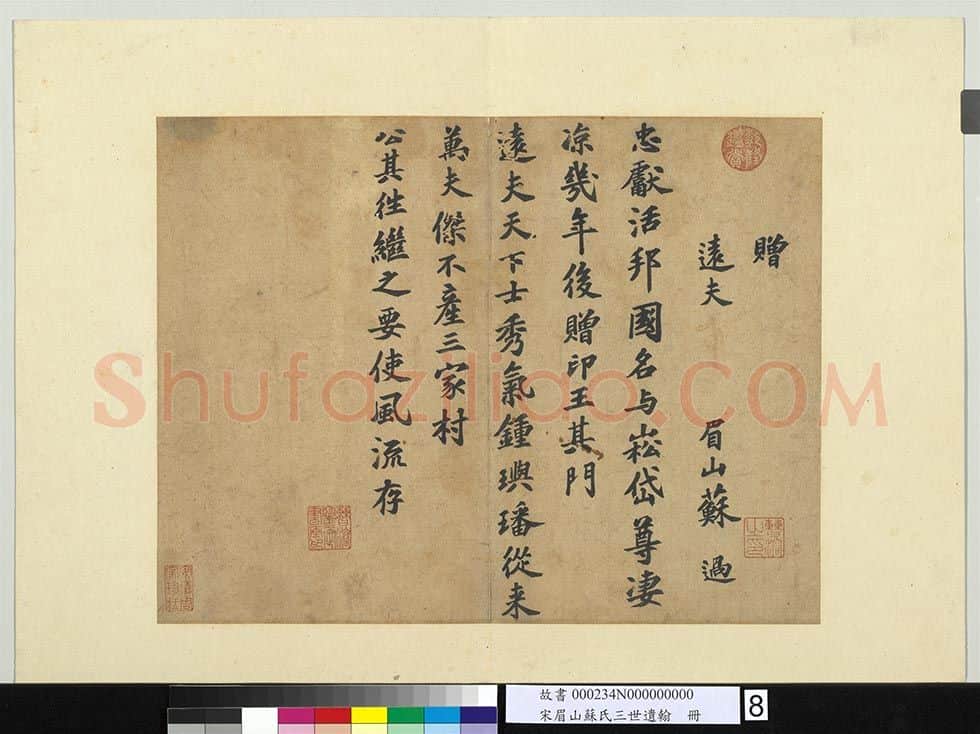 贈
遠夫　眉山蘇過
忠獻活邦國名与崧岱尊淒
凉幾年後贈印玉其門
遠夫天下士秀氣鍾璵璠從来
萬夫傑不產三家村
公其徃繼之要使風流存
Shufaziliao.COM
故書 000234N000000000
宋眉山蘇氏三世遺翰 冊
8